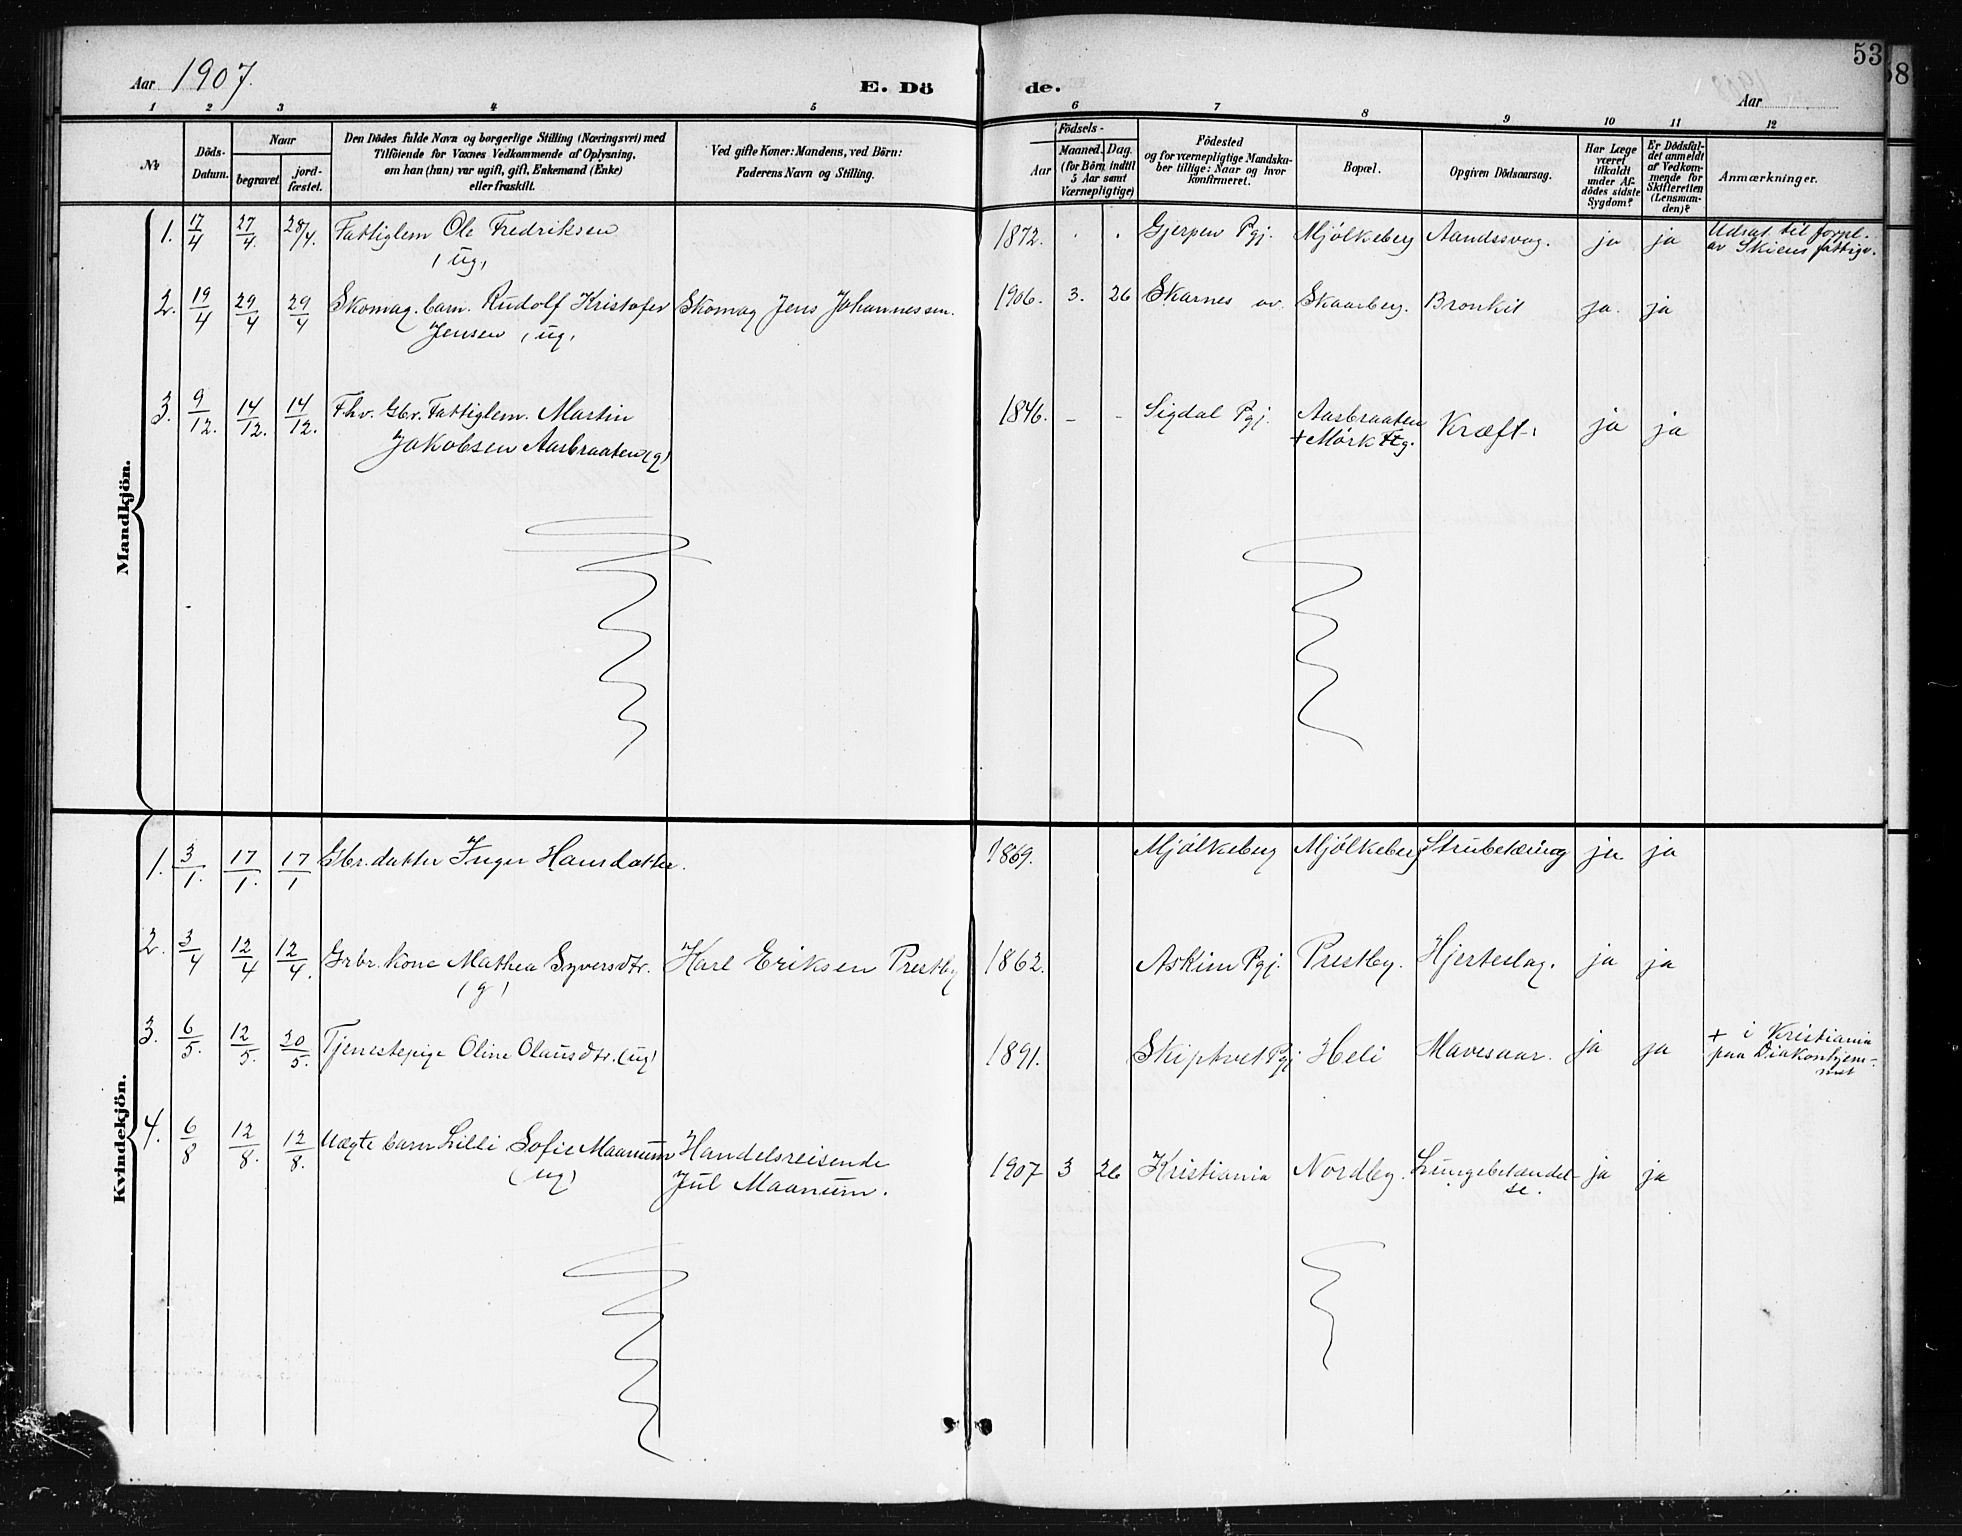 53
58
Aar 1907.
E. Dö de.
Aar
1 2 3 4 5 6 7 8 9 10 11 12
No
Döds-Datum.
Naar
begravet
jord-fæstet.
Den Dödes fulde Navn og borgerlige Stilling (Næringsvei) med
Tilföiende for Voxnes Vedkommende af Oplysning,
om han (hun) var ugift, gift, Enkemand (Enke)
eller fraskilt.
Ved gifte Koner: Mandens, ved Börn:
Faderens Navn og Stilling.
Födsels-
Aar
Maaned.
Dag.
(for Börn indtil
5 Aar samt
Værnepligtige)
Födested
og for værnepligtige Mandska-
ber tillige: Naar og hvor
konfirmeret.
Bopæl.
Opgiven Dödsaarsag.
Har Læge
været
tilkaldt
under Af-
dödes sidste
Sygdom?
Er Dödsfal-
det anmeldt
af Vedkom-
mende for
Skifteretten
(Lensman-
den)?
Anmærkninger.
Mandkjön.
1. 17/4 27/4. 28/4. Fattiglem Ole Fredriksen
(ug)
1872. . . Gjerpen Pgj. Mjölkeberg Aandssvag. ja ja Udsat til forpl.
av Skiens fattigv.
2. 19/4 29/4 29/4 Skomag. barn. Rudolf Kristofer
Jensen (ug)
Skomag Jens Johannessen.
1906. 3. 26 Skarnes av. Skaarberg. Bronkit ja. ja
3. 9/12. 14/12. 14/12. Fhv. Gbr. Fattiglem. Martin
Jakobsen Aasbraaten (g)
1846. - - Sigdal Pgj. Aasbraaten
+ Mörk Ftg. Kræft. ja ja
Kvindekjön.
1. 3/1. 17/1. 17/1 Gbr. datter Inger Hansdatter.
1869. Mjölkeberg Mjölkeberg Strubetæring ja ja
2. 3/4 12/4 12/4. Grbr. kone Mathea Syversdtr.
(g)
Karl Eriksen Prestby
1862. Askim Pgj. Prestby. Hjerteslag. ja ja
3. 6/5. 12/5. 20/5. Tjenestepige Oline Olausdtr. (ug)
1891. Skiptvet Pgj Heli Mavesaar. ja ja + i Kristiania
paa Diakonhjem-
met
4. 6/8 12/8. 12/8. Uægte barn Lilli Sofie Maanum
(ug)
Handelsreisende
Jul Maanum.
1907 3 26 Kristiania Nordby. Lungebetændel-
se. ja ja